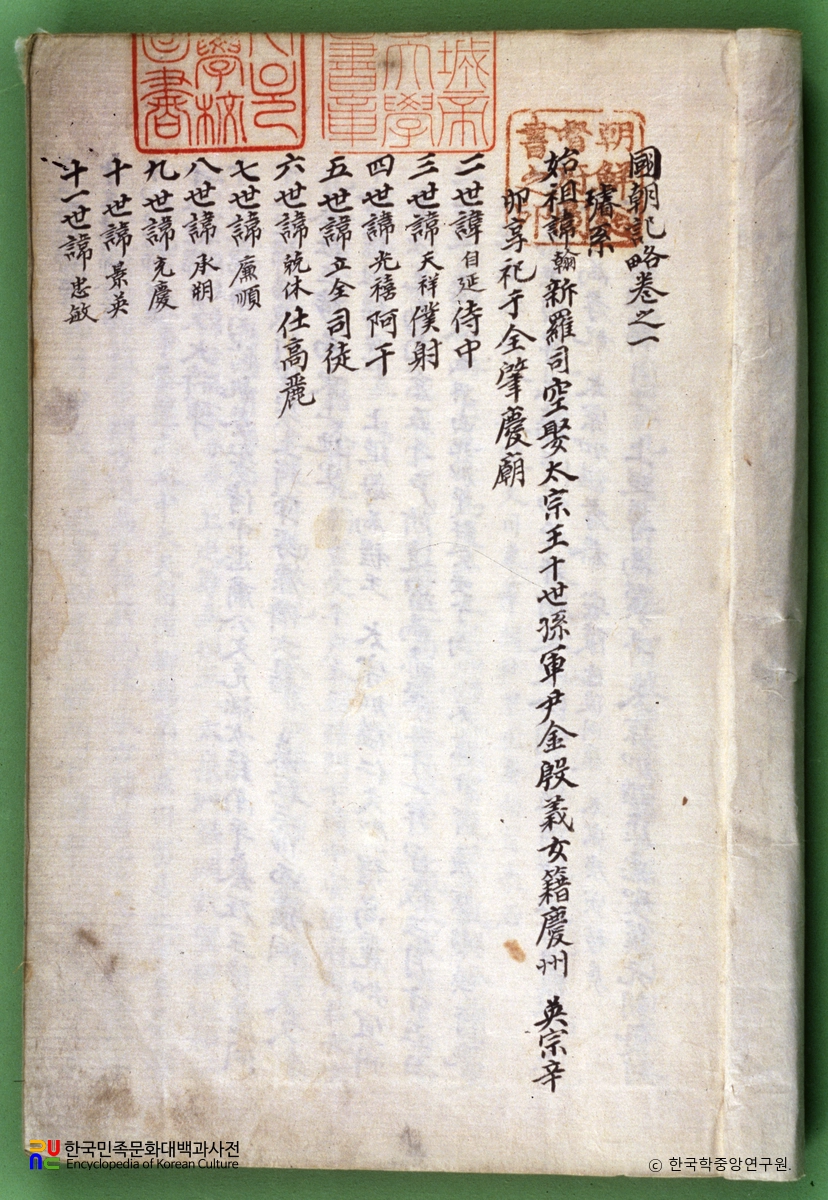 國朝記略卷之一
璿系
始祖諱翰新羅司空娶太宗王十世孫軍尹金殷義女籍慶州 英宗辛
卯享祀于全肇慶廟
二世諱自延侍中
三世諱天祥僕射
四世諱光禧阿干
五世諱立全司徒
六世諱兢休仕高麗
七世諱廉順
八世諱承朔
九世諱充慶
十世諱景英
十一世諱忠敏
城帝
大學
書章
學校
圖書
朝鮮總
督府圖
書之印
한국민족문화대백과사전
Encyclopedia of Korean Culture
© 한국학중앙연구원.